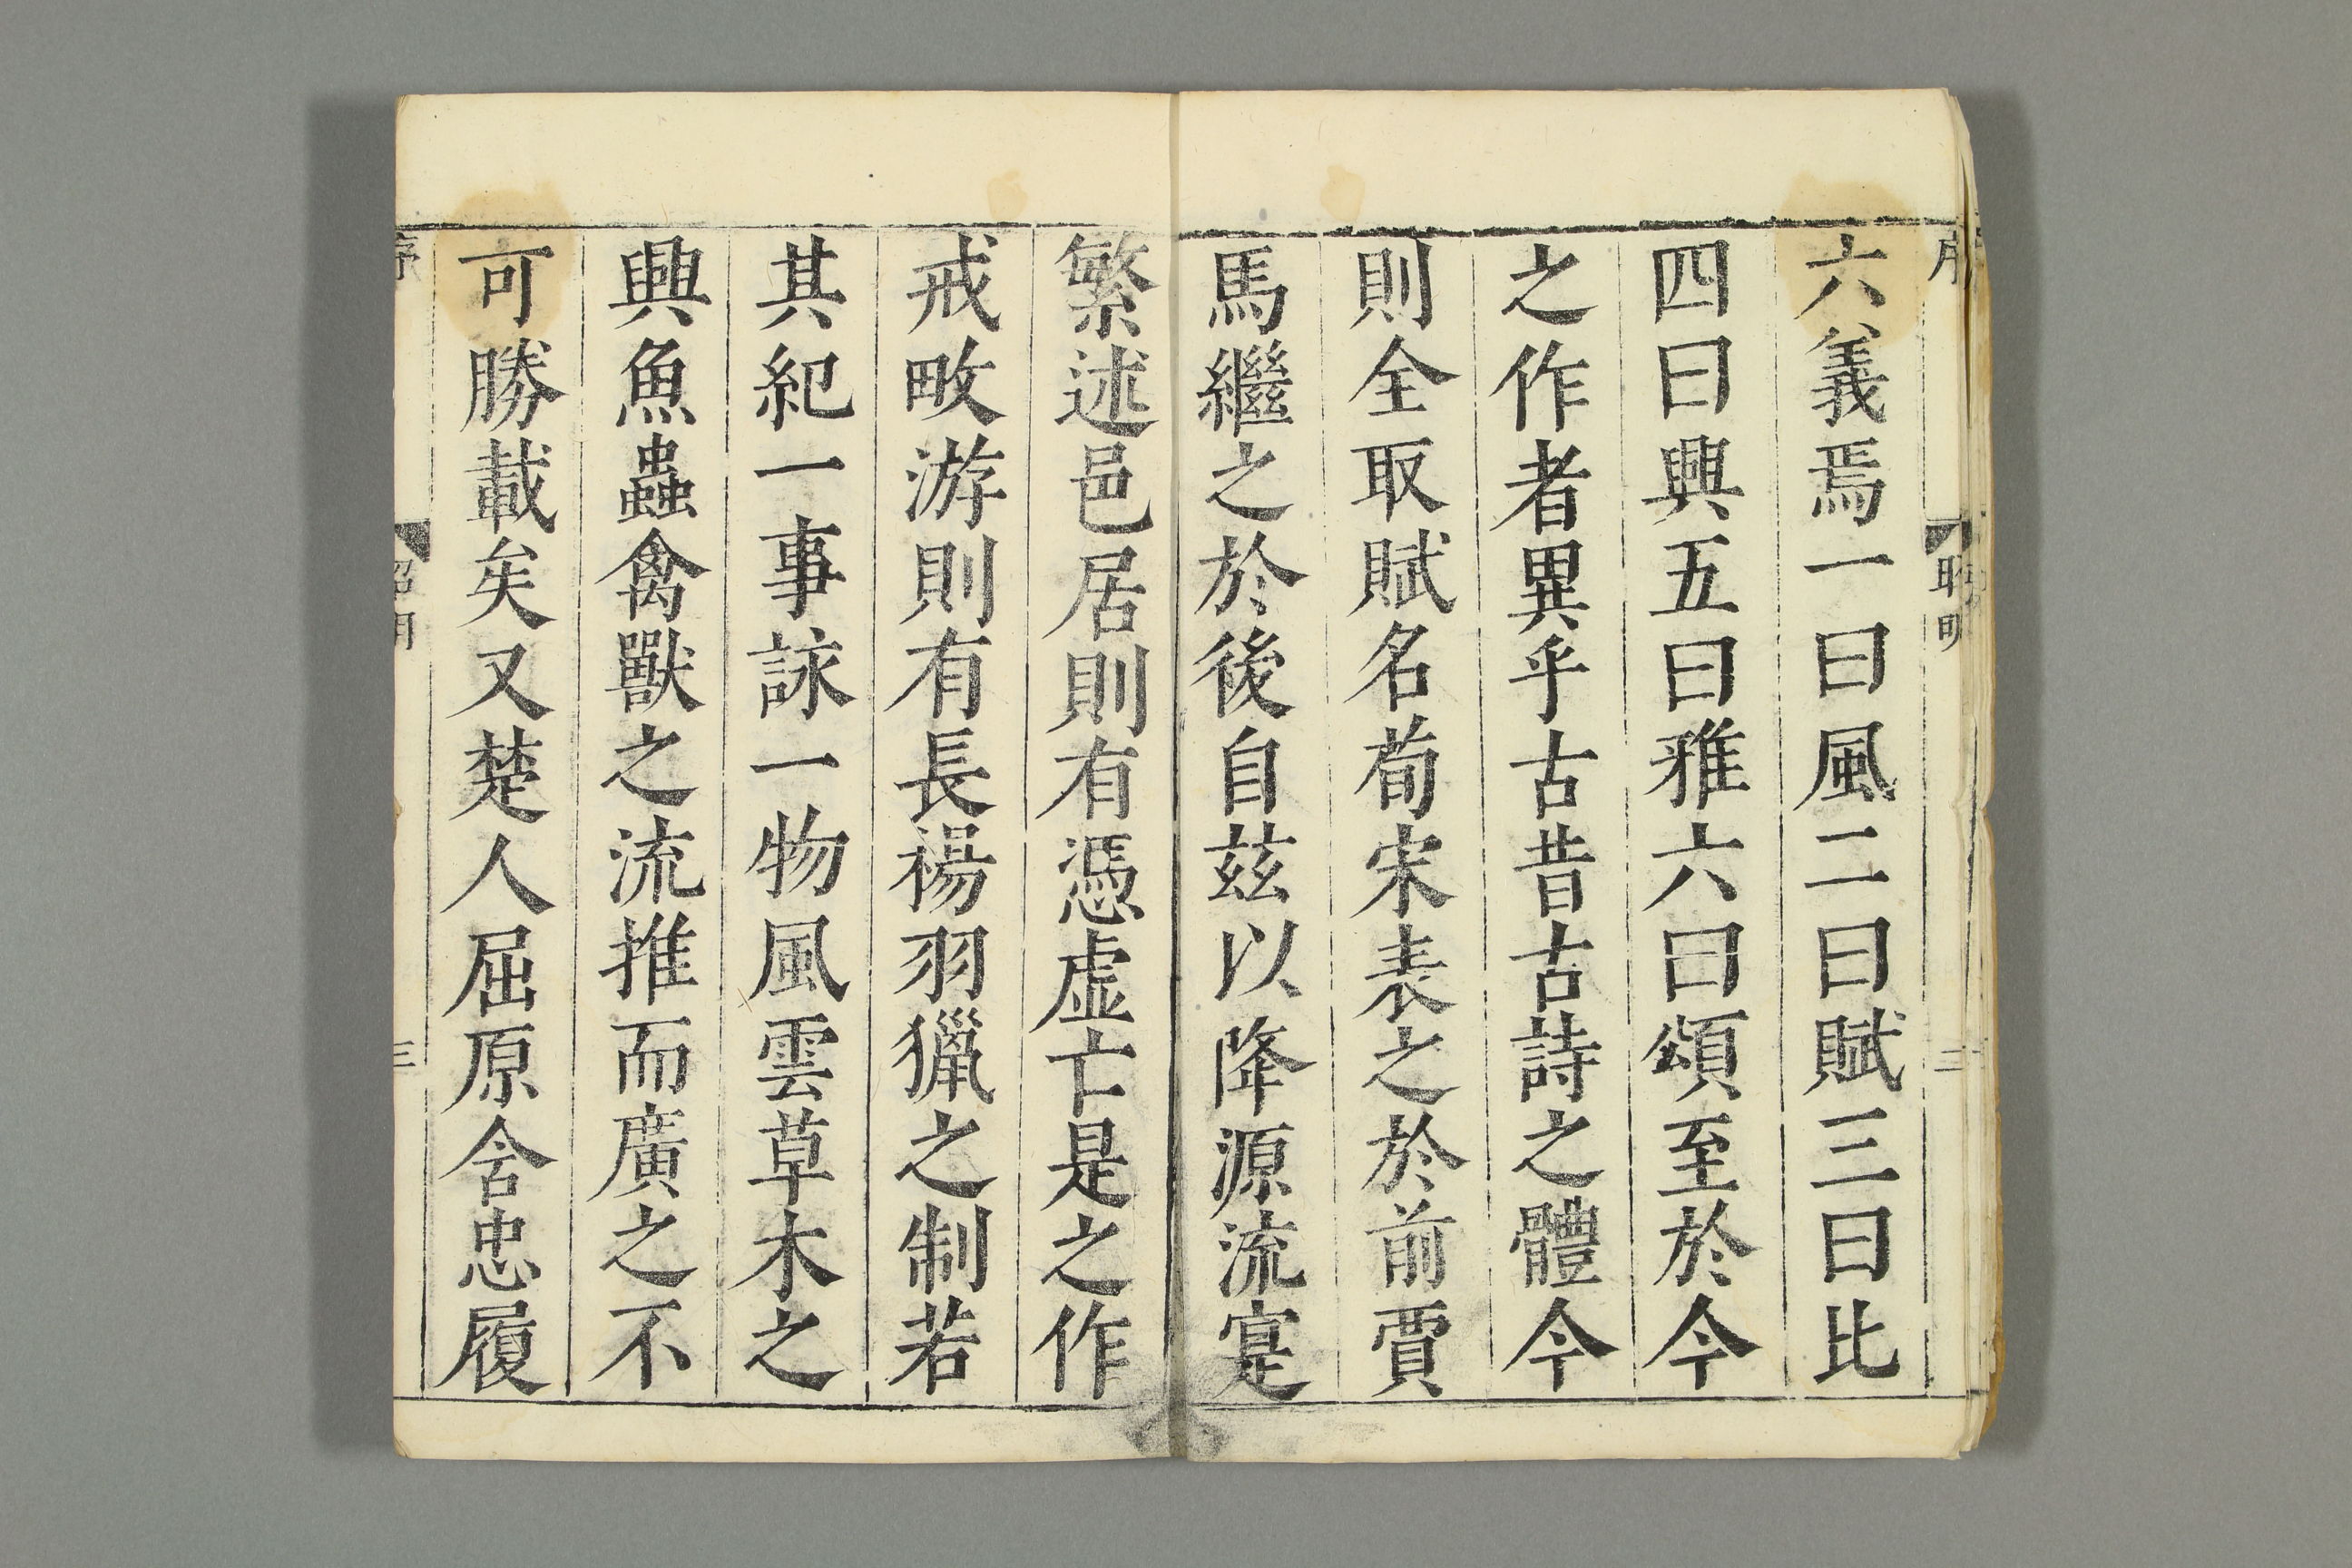 六義焉一曰風二曰賦三曰比
四曰興五曰雅六曰頌至於今
之作者異乎古昔古詩之體今
則全取賦名荀宋表之於前賈
馬繼之於後自茲以降源流寔
繁述邑居則有憑虛亡是之作
戒畋游則有長楊羽獵之制若
其紀一事詠一物風雲草木之
興魚蟲禽獸之流推而廣之不
可勝載矣又楚人屈原含忠履
序
昭明
三